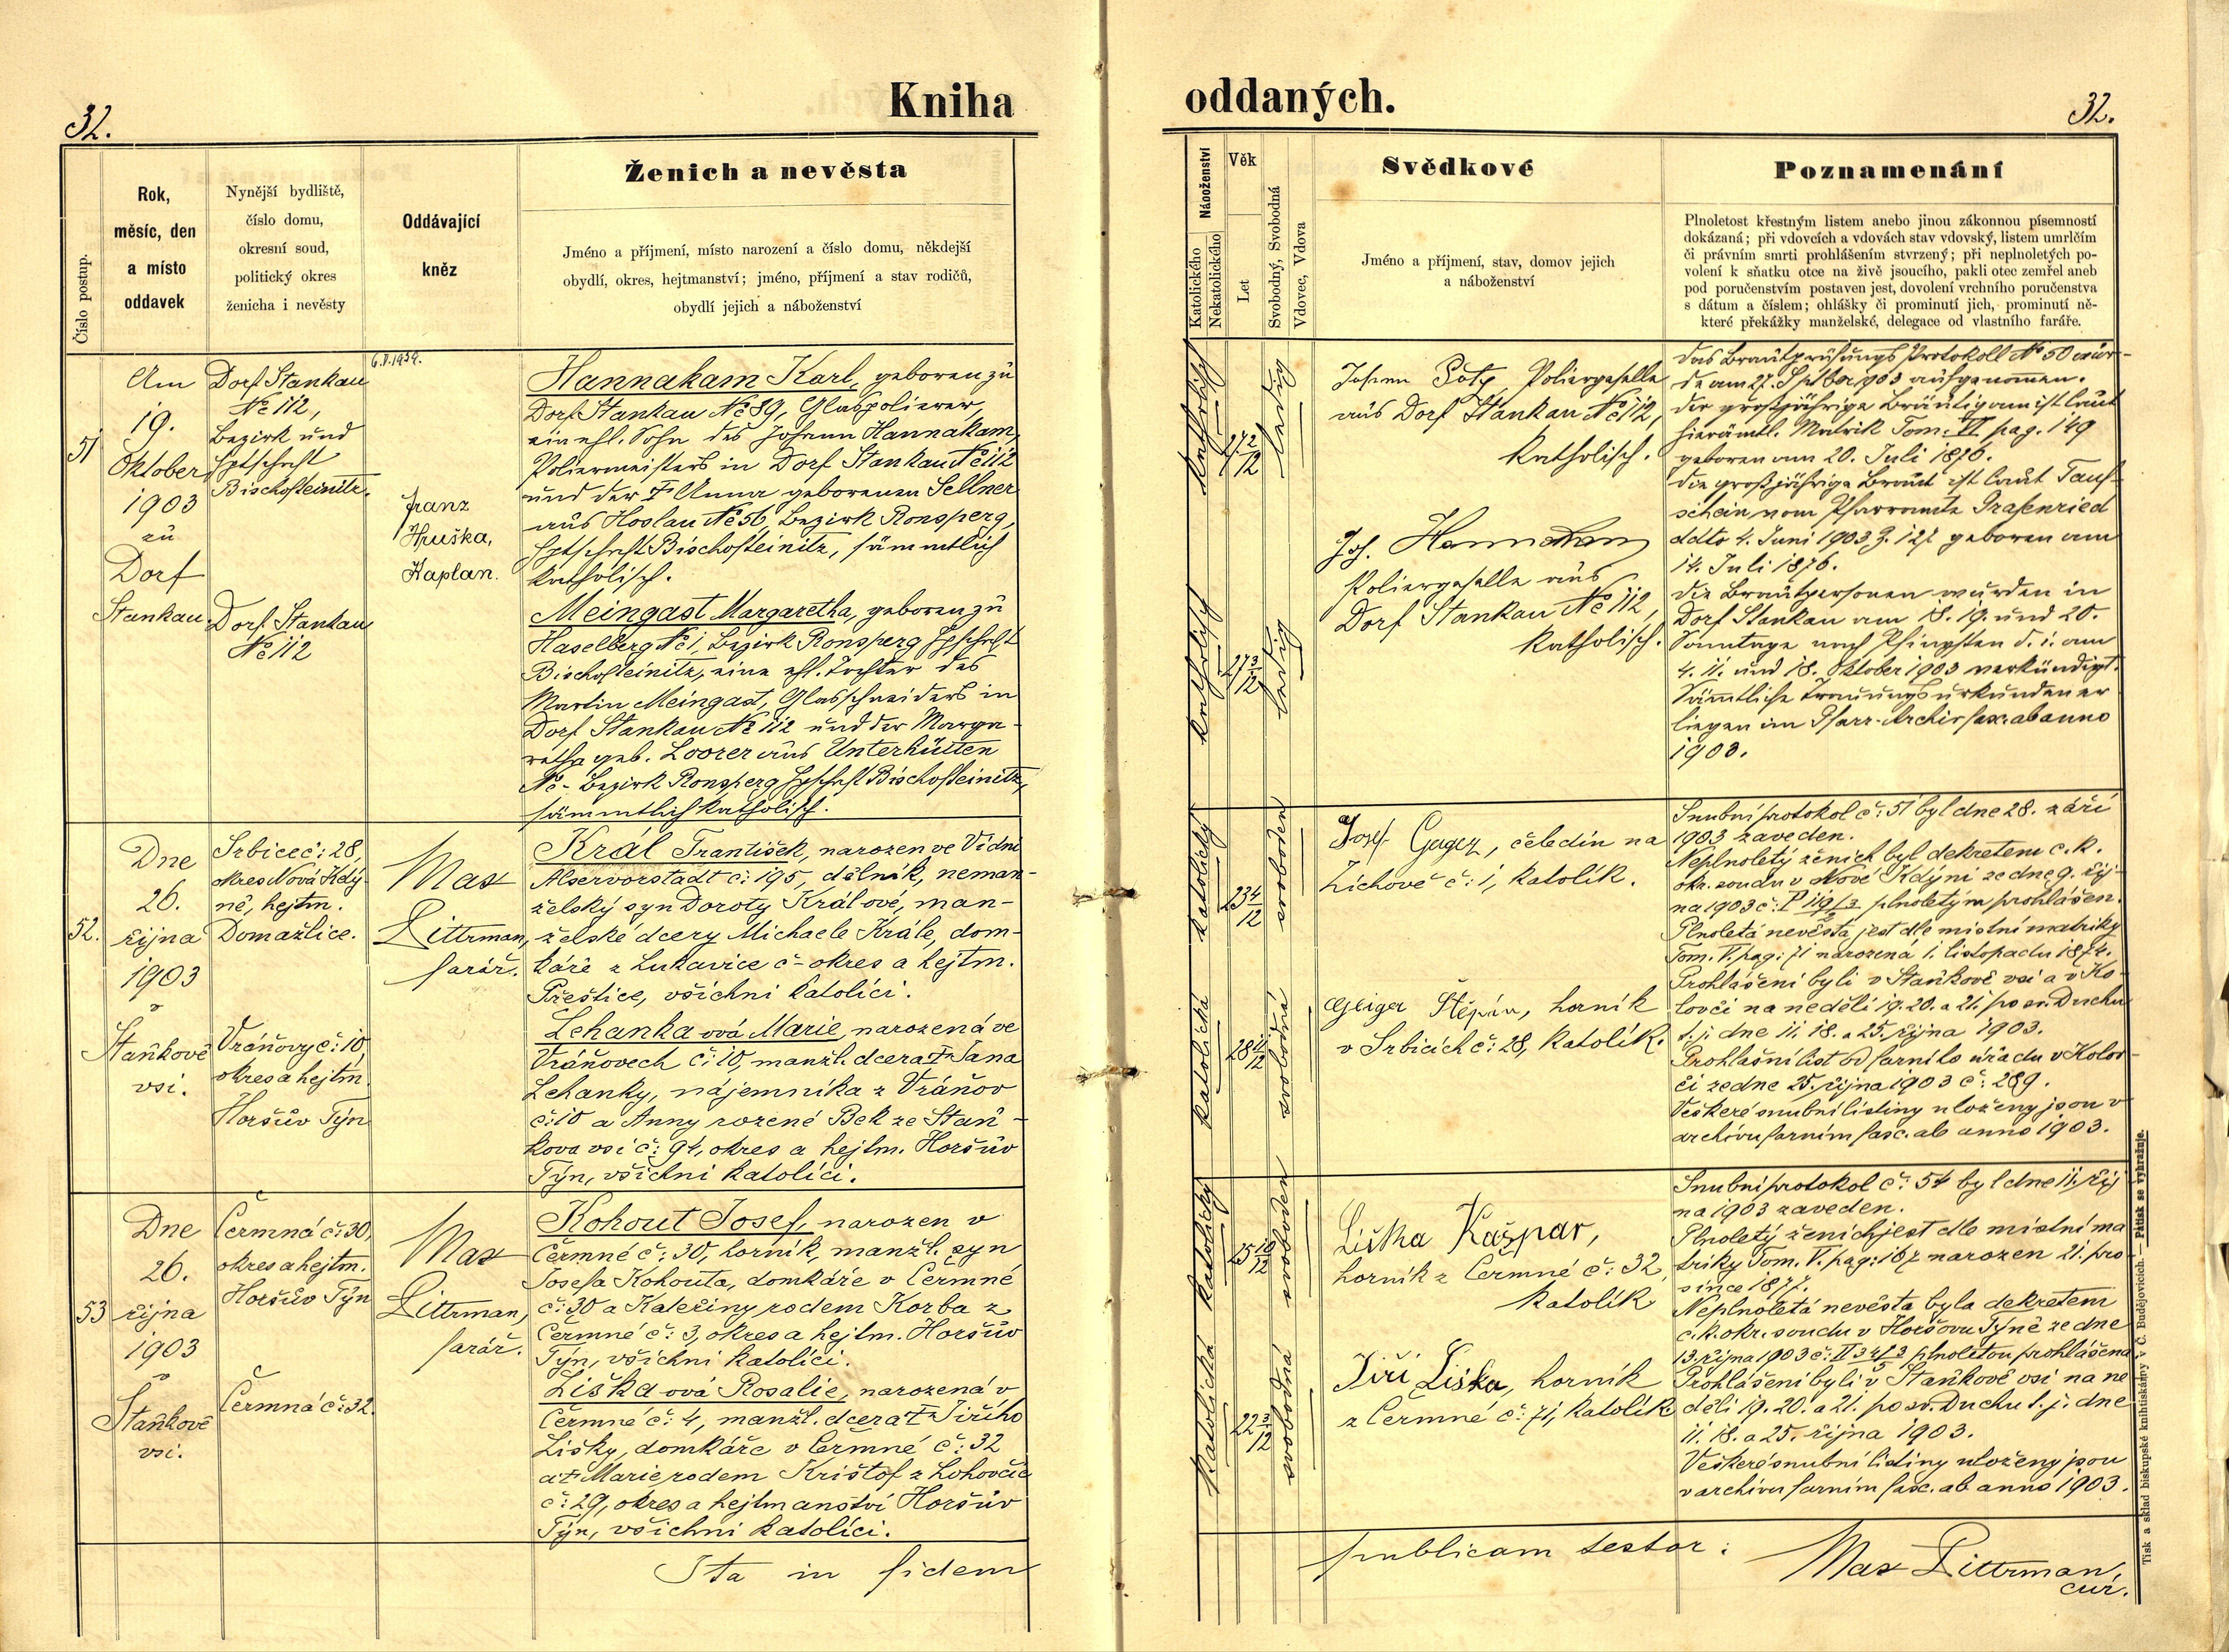 32.
Kniha
Číslo postup.
Rok,
měsíc, den
a místo
oddavek
Nynější bydliště,
číslo domu,
okresní soud,
politický okres
ženicha i nevěsty
Oddávající
kněz
Ženich a nevěsta
Jméno a příjmení, místo narození a číslo domu, někdejší
obydlí, okres, hejtmanství; jméno, příjmení a stav rodičů,
obydlí jejich a náboženství
51
Am
19.
Oktober
1903
zu
Dorf
Stankau
Dorf Stankau
No 112,
Bezirk und
Hptschft
Bischofteinitz.
Dorf Stankau
No 112
6.V.1939.
Franz
Huška,
Kaplan.
Hannakam Karl, geboren zu
Dorf Stankau No 89, Glaspolierer,
ein ehl. Sohn des Johann Hannakam,
Poliermeisters in Dorf Stankau No 112
und der † Anna geborenen Sellner
aus Hoslau No 56, Bezirk Ronsperg,
Hptschft Bischofteinitz, sämmtlich
katholisch.
Meingast Margaretha, geboren zu
Haselberg No 1, Bezirk Ronsperg Hptschft
Bischofteinitz, eine ehl. Tochter des
Martin Meingast, Glasschneiders in
Dorf Stankau No 112 und der Marga-
retha geb. Loorer aus Unterhütten
No - Bezirk Ronsperg Hptschft Bischofteinitz,
sämmtlich katholisch.
52.
Dne
26.
října
1903
v
Staňkově
vsi.
Srbice č: 28,
okres Nová Kdý-
ně, hejtm.
Domažlice.
Vráňovy č: 10,
okres a hejtm.
Horšův Týn
Max
Littrman,
farář.
Král František, narozen ve Vídni
Alservorstadt č: 195, dělník, neman-
želský syn Doroty Králové, man-
želské dcery Michaele Krále, dom-
káře z Lukavice č - okres a hejtm.
Přeštice, všichni katolíci.
Lehanka ová Marie, narozená ve
Vráňovech č: 10, manžl. dcera † Jana
Lehanky, nájemníka z Vráňov
č: 10 a Anny rozené Bek ze Staň-
kova vsi č: 94, okres a hejtm. Horšův
Týn, všichni katolíci.
53
Dne
26.
října
1903
v
Staňkově
vsi.
Čermná č: 30,
okres a hejtm.
Horšův Týn
Čermná č: 32.
Max
Littrman,
farář.
Kohout Josef, narozen v
Čermné č: 30, horník, manžl. syn
Josefa Kohouta, domkáře v Čermné
č: 30 a Kateřiny rodem Korba z
Čermné č: 3, okres a hejtm. Horšův
Týn, všichni katolíci.
Liška ová Rosalie, narozená v
Čermné č: 4, manžl. dcera † Jiřího
Lišky, domkáře v Čermné č: 32
a † Marie rodem Krištof z Lohovčic
č: 29, okres a hejtmanství Horšův
Týn, všichni katolíci.
Ita in fidem
oddaných.
32.
Náboženství
Katolického
Nekatolického
Věk
Let
Svobodný, Svobodná
Vdovec, Vdova
Svědkové
Jméno a příjmení, stav, domov jejich
a náboženství
Poznamenání
Plnoletost křestným listem anebo jinou zákonnou písemností
dokázaná; při vdovcích a vdovách stav vdovský, listem umrlčím
či právním smrti prohlášením stvrzený; při neplnoletých po-
volení k sňatku otce na živě jsoucího, pakli otec zemřel aneb
pod poručenstvím postaven jest, dovolení vrchního poručenstva
s dátum a číslem; ohlášky či prominutí jich, prominutí ně-
které překážky manželské, delegace od vlastního faráře.
katholisch
27 2/12
ledig
katholisch
27 3/12
ledig
Johann Poliergeselle
aus Dorf Stankau No 112,
katholisch.
Joh. Hannakam
Poliergeselle aus
Dorf Stankau No 112,
katholisch.
Das Brautprüfungs Protokoll No 50 wur-
de am 27. Septber 1903 aufgenommen.
Der großjährige Bräutigam ist laut
hierämtl. Matrik Tom. VI. pag. 149
geboren am 20. Juli 1876.
Die großjährige Braut ist laut Tauf-
schein vom Pfarramte Grafenried
ddto 4. Juni 1903 Z. 127 geboren am
14. Juli 1876.
Die Brautpersonen wurden in
Dorf Stankau am 18. 19. und 20.
Sonntage nach Pfingsten d. i. am
4. 11. und 18. Oktober 1903 verkündigt.
Sämmtliche Trauungsurkunden er
liegen im Pfarr-Archiv fasc. ab anno
1903.
katolický
23 4/12
svoboden
katolická
28 11/12
svobodná
Josef Geiger, čeledín na
Lichově č: 1, katolík.
Geiger Štěpán, horník
v Srbicích č: 28, katolík.
Snubní protokol č: 51 byl dne 28. září
1903 zaveden.
Neplnoletý ženich byl dekretem c. k.
okr. soudu v Nové Kdyni ze dne 9. říj-
na 1903 č: P 119/3 plnoletým prohlášen.
Plnoletá nevěsta jest dle místní matriky
Tom. V. pag: 71 narozená 1. listopadu 1874.
Prohlášeni byli v Staňkově vsi a v Ko-
lovči na neděli 19. 20. a 21. po sv. Duchu
t. j. dne 11. 18. a 25. října 1903.
Prohlašní list od farního úřadu v Kolov-
či ze dne 25. října 1903 č: 289.
Veškeré snubní listiny uloženy jsou v
archívu farním fasc. ab anno 1903.
katolický
25 10/12
svoboden
katolická
22 3/12
svobodná
Liška Kašpar,
horník z Čermné č: 32,
katolík
Jiří Liška, horník
z Čermné č: 71, katolík
Snubní protokol č: 54 byl dne 11. říj
na 1903 zaveden.
Plnoletý ženich jest dle místní ma
triky Tom. V. pag: 167 narozen 21. pro
since 1877.
Neplnoletá nevěsta byla dekretem
c. k. okr. soudu v Horšovu Týně ze dne
13. října 1903 č: plnoletou prohlášena
Prohlášeni byli v Staňkově vsi na ne
děli 19. 20. a 21. po sv. Duchu t. j. dne
11. 18. a 25. října 1903.
Veškeré snubní listiny uloženy jsou
v archívu farním fasc. ab anno 1903.
publicam testor:
Max Littrman,
cur.
Tisk a sklad biskupské knihtiskárny v Č. Budějovicích. — Pátisk se vyhražuje.